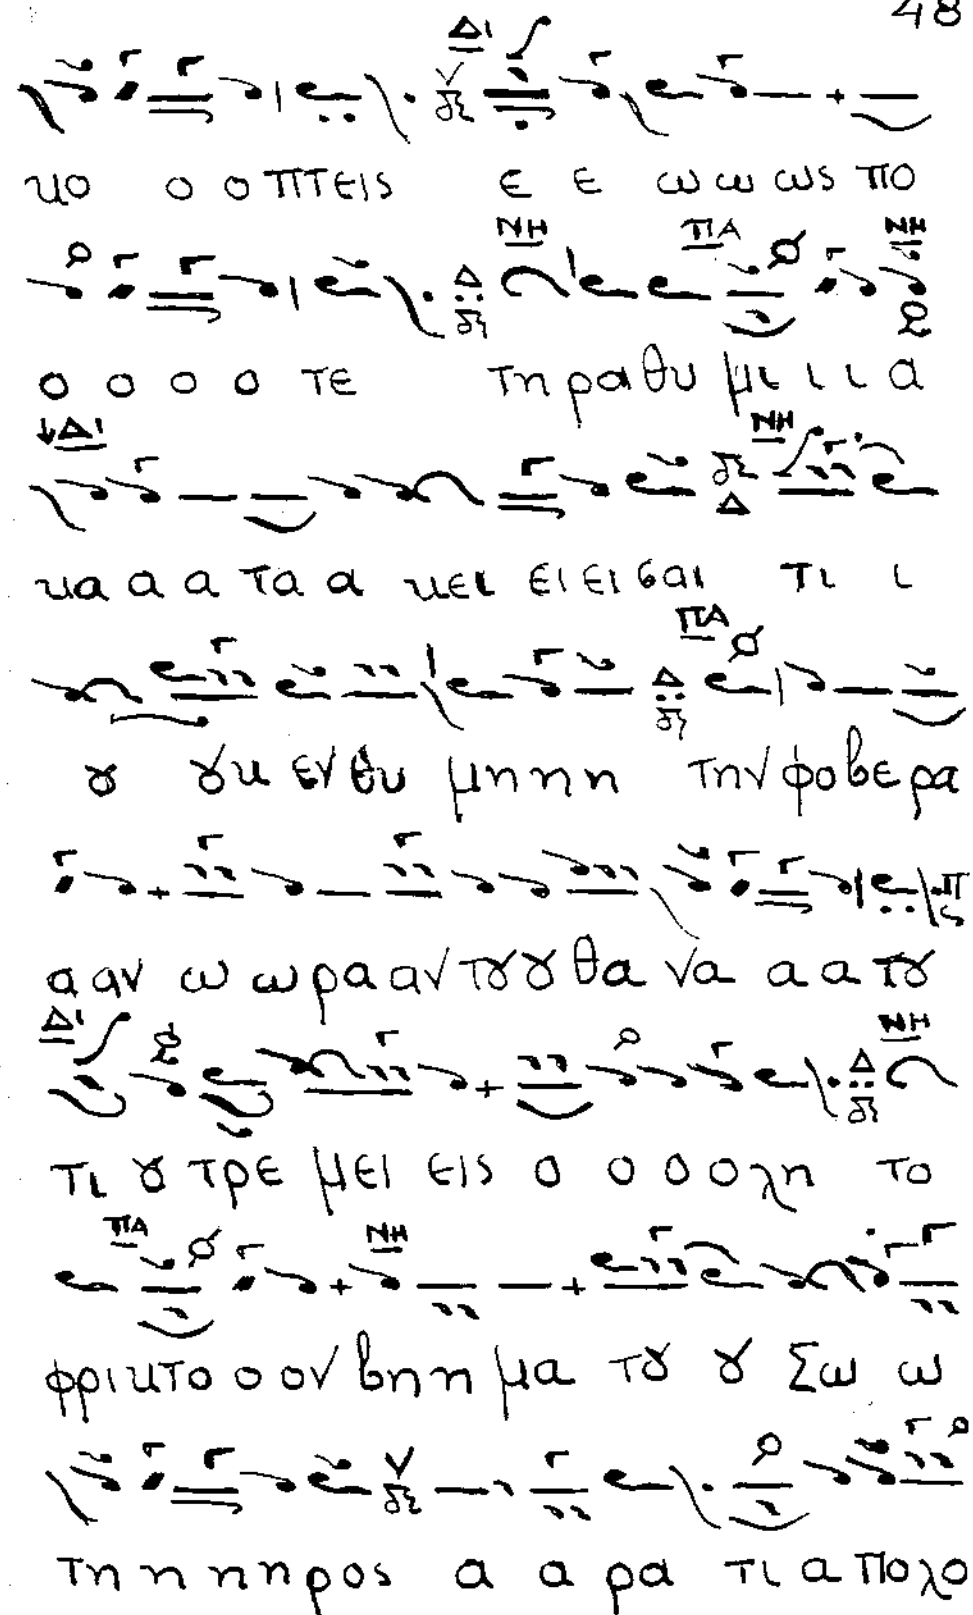 48
Δι
κο ο ο πτεις ε ε ω ω ως πο
ΝΗ ΠΑ ΝΗ
ο ο ο ο τε τη ρα θυ μι ι ι α
Δι ΝΗ
κα α α τα α κει ει ει σαι τι ι
ΠΑ
ȣ ȣκ εν θυ μη η η την φο βε ρα
α αν ω ω ρα αν τȣ ȣ θα να α α τȣ
Δι ΝΗ
τι ȣ τρε μει εις ο ο ο ο λη το
ΠΑ ΝΗ
φρι κτο ο ον βη η μα τȣ ȣ Σω ω
τη η η η ρος α α ρα τι α πο λο